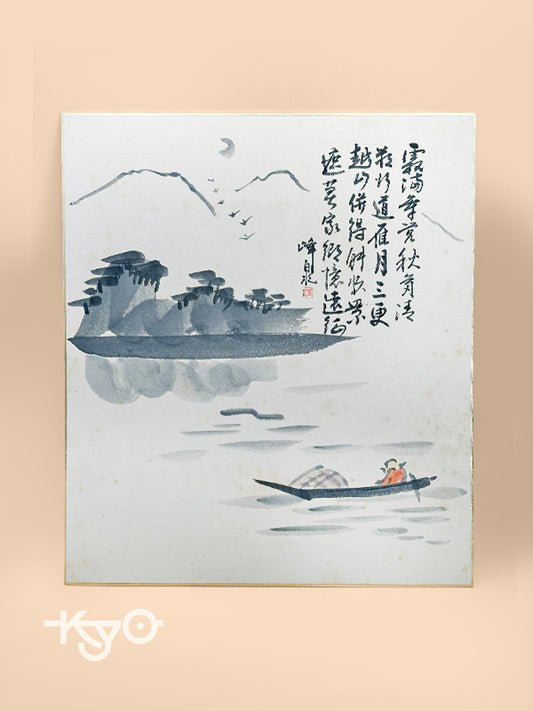 霜満軍営秋気清
数行過雁月三更
越山併得能州景
遮莫家郷憶遠征
峰泉
KyO